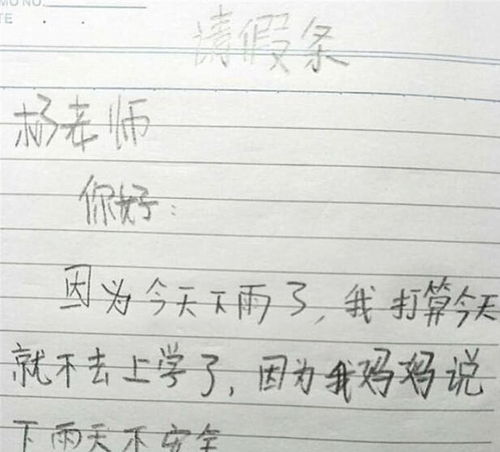 MO NO.
TE
请假条
杨老师
你好：
因为今天下雨了，我打算今天
就不去上学了，因为我妈妈说
下雨天不安全